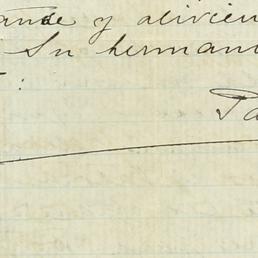 ande y alivien
Su herman
Pa